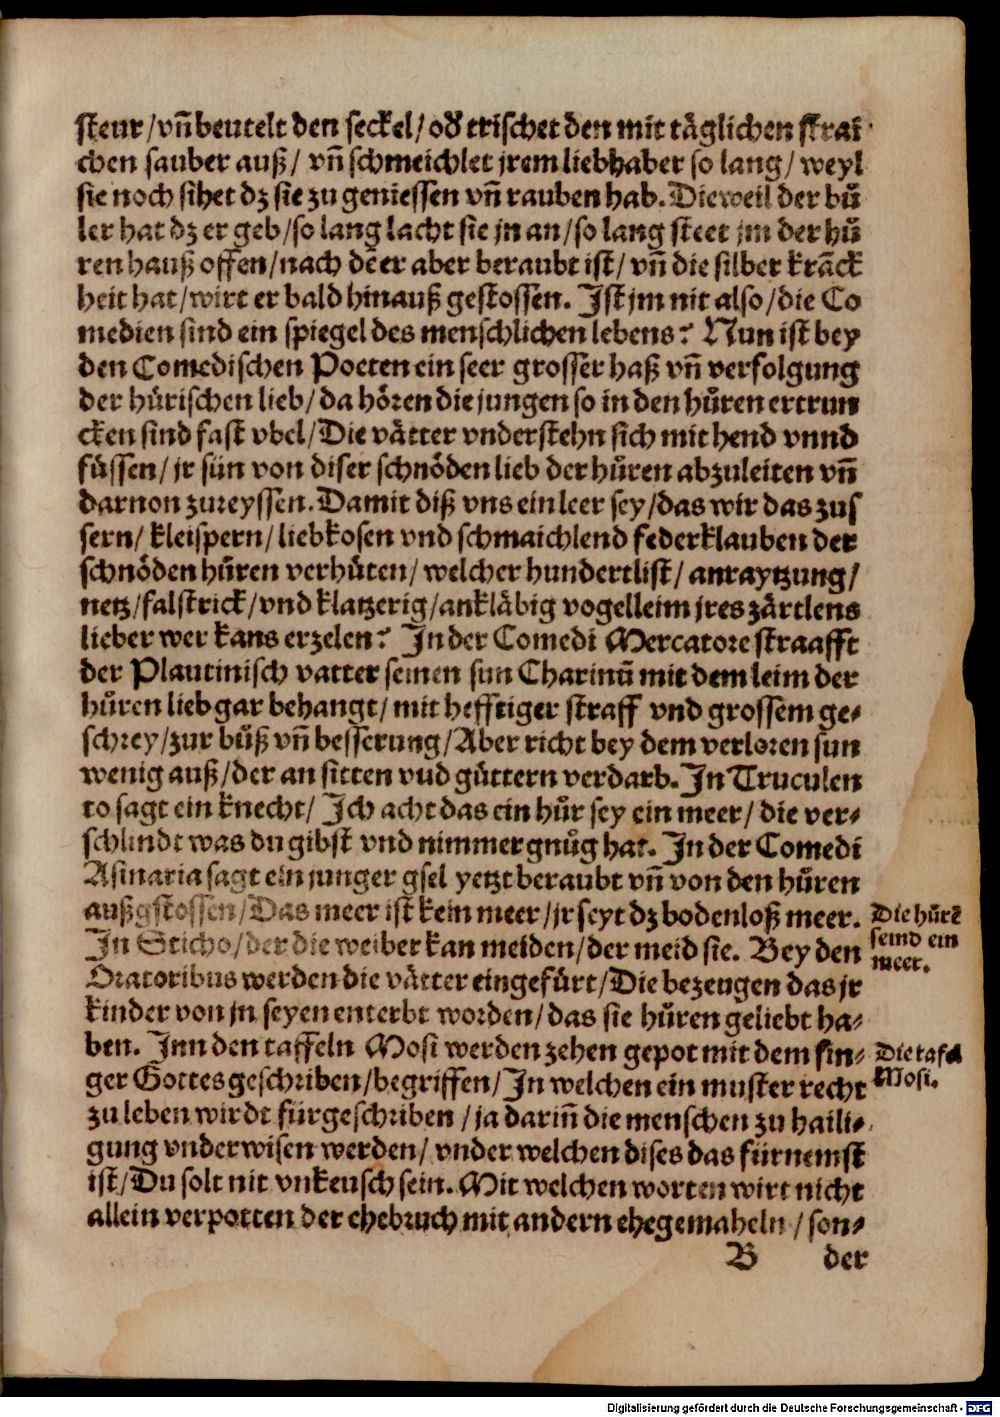 steur/vñ beutelt den seckel/od̕ trischet den mit täglichen strai
chen sauber auß/ vñ schmeichlet jrem liebhaber so lang/ weyl
sie noch sihet dz sie zu geniessen vñ rauben hab. Dieweil der bů
ler hat dz er geb/so lang lacht sie jn an/so lang steet jm der hů
ren hauß offen/nach dē er aber beraubt ist/ vñ die silber krāck
heit hat/wirt er bald hinauß gestossen. Ist jm nit also/die Co
medien sind ein spiegel des menschlichen lebens? Nun ist bey
den Comedischen Poeten ein seer grosser haß vñ verfolgung
der hůrischen lieb/ da hören die jungen so in den hůren ertrun
cken sind fast vbel/Die vätter vnderstehn sich mit hend vnnd
füssen/ jr sün von diser schnöden lieb der hůren abzuleiten vñ
darnon zureyssen. Damit diß vns ein leer sey/das wir das zus
sern/ kleispern/ liebkosen vnd schmaichlend federklauben der
schnöden hůren verhüten/ welcher hundertlist/ anraytzung/
netz/falstrick/vnd klatzerig/ankläbig vogelleim jres zärtlens
lieber wer kans erzelen? In der Comedi Mercatore straafft
der Plautinisch vatter seinen sun Charinū mit dem leim der
hůren lieb gar behangt/ mit hefftiger straff vnd grossem ge-
schrey/zur bůß vñ besserung/Aber richt bey dem verloren sun
wenig auß/der an sitten vud güttern verdarb. In Truculen
to sagt ein knecht/ Ich acht das ein hůr sey ein meer/ die ver-
schlindt was du gibst vnd nimmer gnůg hat. In der Comedi
Asinaria sagt ein junger gsel yetzt beraubt vñ von den hůren
außgstossen/Das meer ist kein meer/jr seyt dz bodenloß meer.
Die hůrē
seind ein
meer.
In Sticho/der die weiber kan meiden/der meid sie. Bey den
Oratoribus werden die vätter eingefürt/Die bezeugen das jr
kinder von jn seyen enterbt worden/das sie hůren geliebt ha-
ben. Inn den taffeln Mosi werden zehen gepot mit dem fin-
Die tafel
Mosi.
ger Gottes geschriben/begriffen/In welchen ein muster recht
zu leben wirdt fürgeschriben /ja dariñ die menschen zu haili-
gung vnderwisen werden/ vnder welchen dises das fürnemst
ist/Du solt nit vnkeusch sein. Mit welchen worten wirt nicht
allein verpotten der ehebruch mit andern ehegemaheln /son-
B der
Digitalisierung gefördert durch die Deutsche Forschungsgemeinschaft - DFG